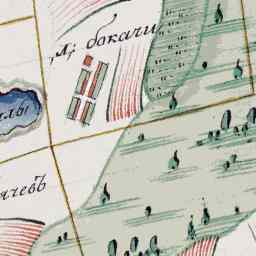 Д: бокачи
лы
ячевъ